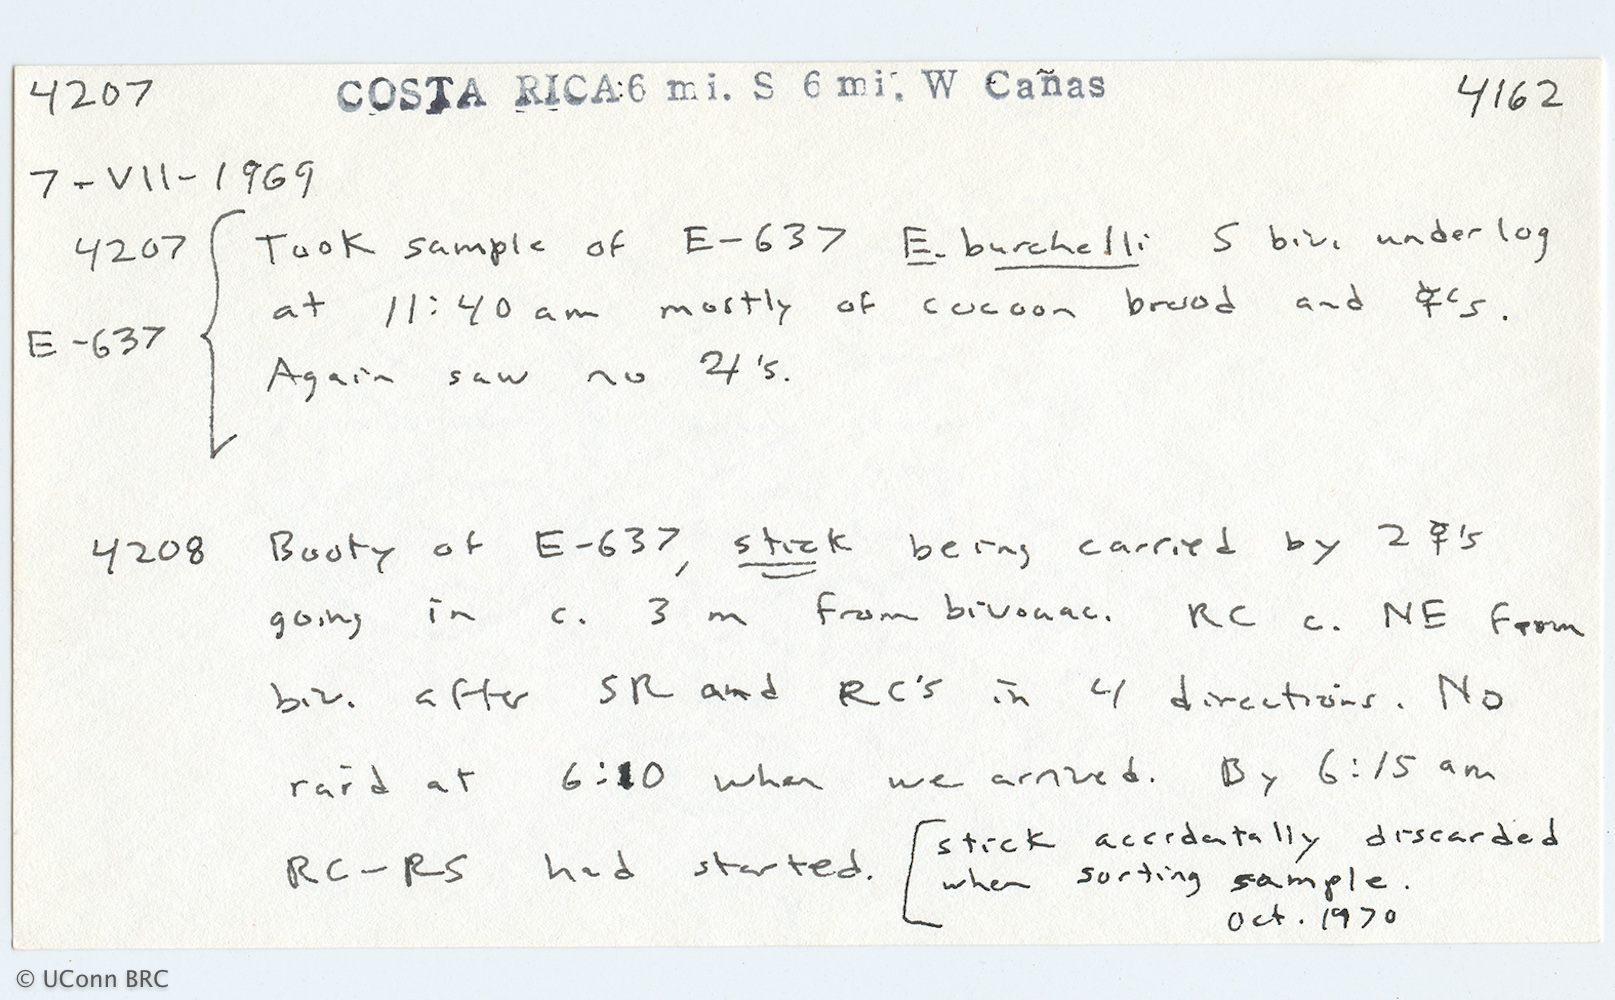 4207 COSTA RICA:6 mi. S 6 mi. W Cañas 4162
7-VII-1969
4207 Took sample of E-637 E. burchelli S biv. under log
at 11:40 am mostly of cocoon brood and ☿c's.
E-637
Again saw no ♃'s.
4208 Booty of E-637, stick being carried by 2 ☿'s
going in c. 3 m from bivouac. RC c. NE from
biv. after SR and RC's in 4 directions. No
raid at 6:10 when we arrived. By 6:15 am
RC-RS had started.
stick accidatally discarded
when sorting sample.
Oct. 1970
© UConn BRC